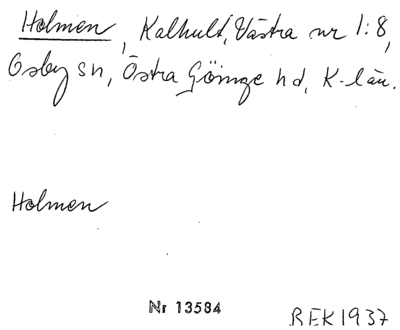 Holmen, Kalhult, Västra nr 1:8,
Osby sn, Östra Göinge hd, K-län.
Holmen
Nr 13584
BEK 1937